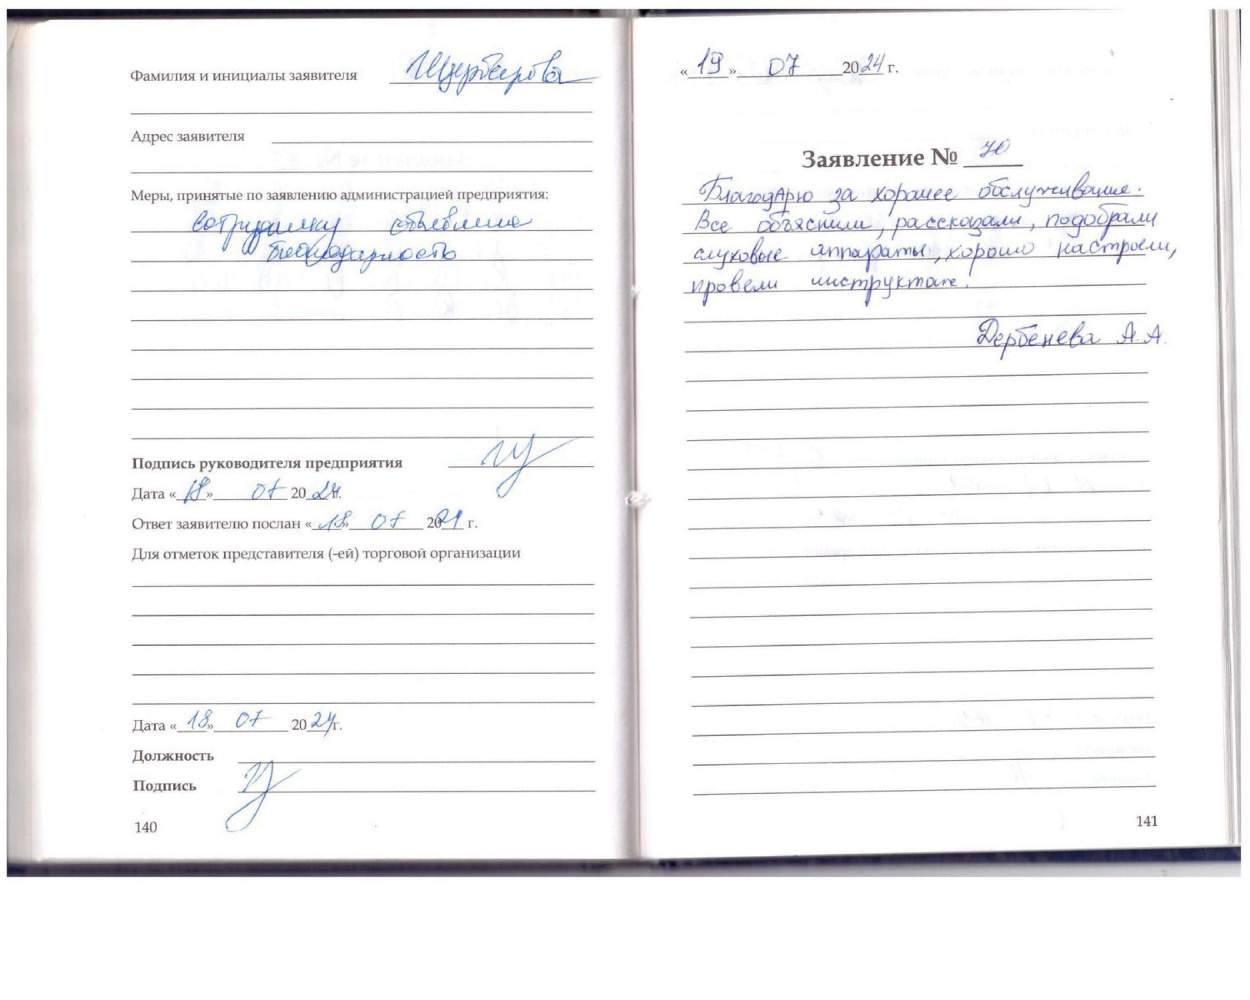 Фамилия и инициалы заявителя Щербакова
Адрес заявителя
Меры, принятые по заявлению администрацией предприятия:
сотруднику объявлена
благодарность
Подпись руководителя предприятия
Дата «18» 07 2024г.
Ответ заявителю послан «18» 07 20 г.
Для отметок представителя (-ей) торговой организации
Дата «18» 07 2024г.
Должность
Подпись
140
«19» 07 2024 г.
Заявление № 70
Благодарю за хорошее обслуживание.
Все объяснили, рассказали, подобрали
слуховые аппараты, хорошо настроили,
провели инструктаж.
Дербенева А.А.
141